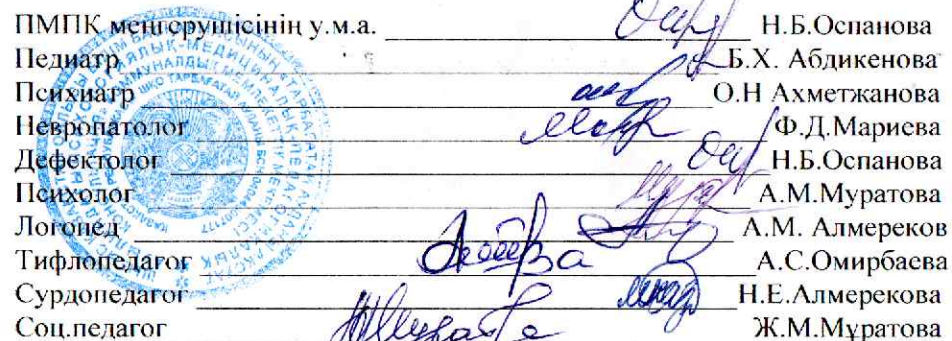 ПМПК меңгерушісінің у.м.а. Н.Б.Оспанова
Педиатр Б.Х. Абдикенова
Психиатр О.Н Ахметжанова
Невропатолог Ф.Д.Мариева
Дефектолог Н.Б.Оспанова
Психолог А.М.Муратова
Логопед А.М. Алмереков
Тифлопедагог А.С.Омирбаева
Сурдопедагог Н.Е.Алмерекова
Соц.педагог Ж.М.Мұратова